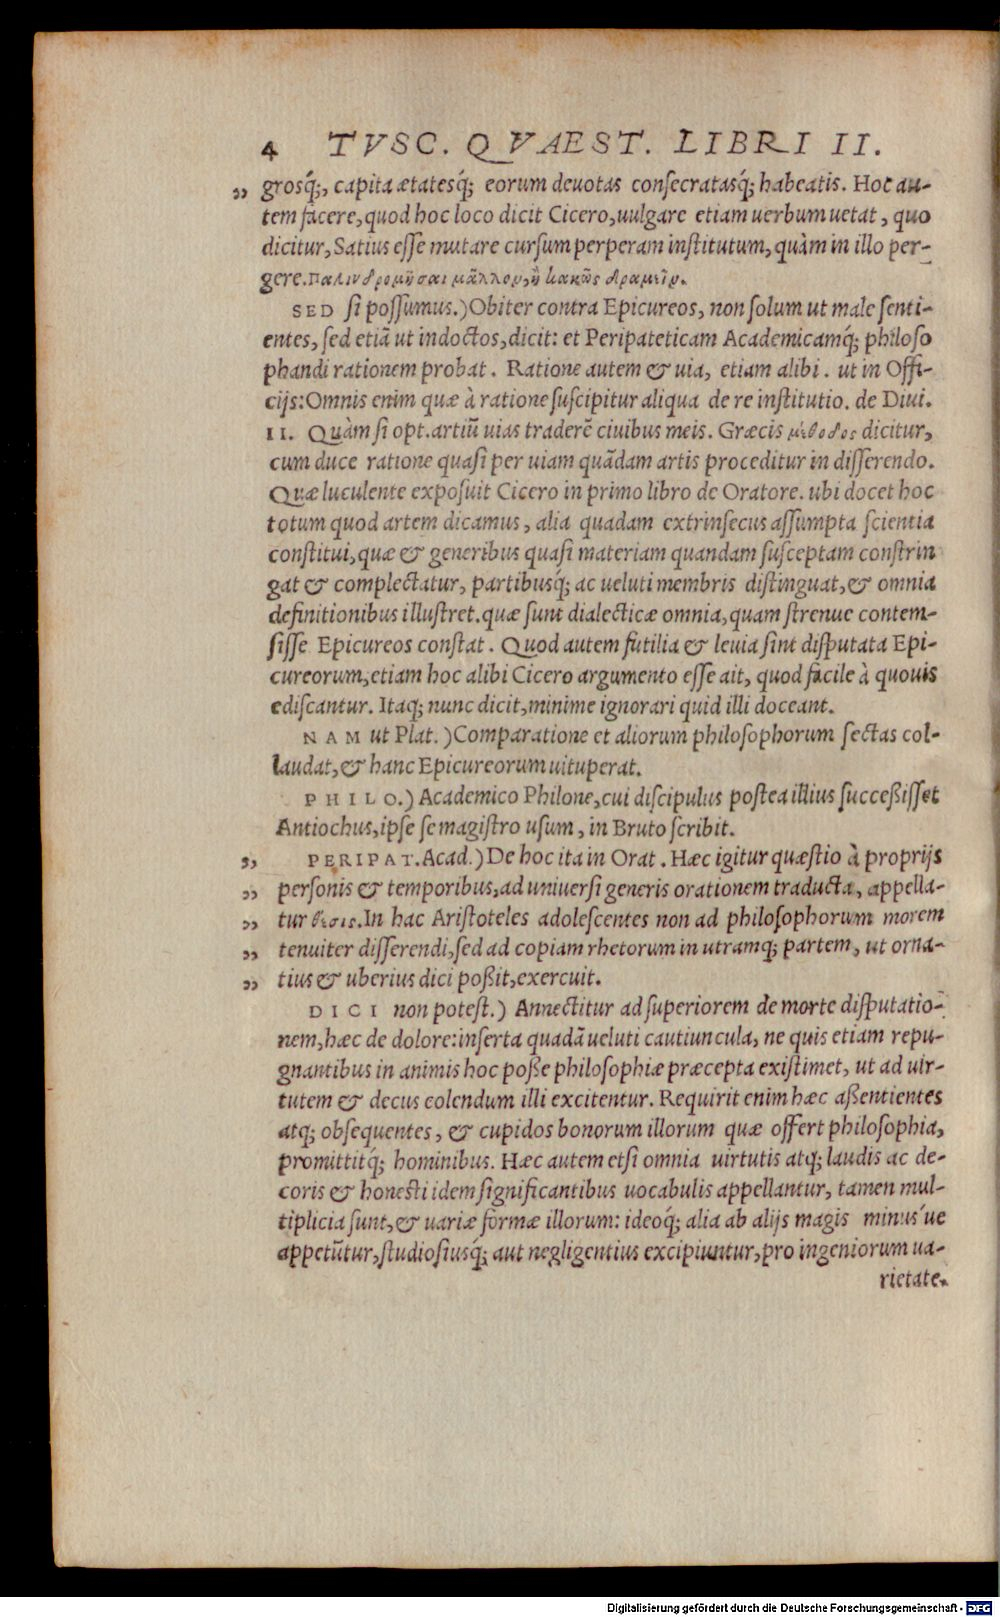 4 TVSC. QVAEST. LIBRI II.
„ grosq́;, capita ætatesq́; eorum deuotas consecratasq́; habeatis. Hoc au-
tem facere, quod hoc loco dicit Cicero, uulgare etiam uerbum uetat, quo
dicitur, Satius esse mutare cursum perperam institutum, quàm in illo per-
gere. παλινδρομῆσαι μᾶλλον, ἢ κακῶς δραμεῖν.
SED si possumus.) Obiter contra Epicureos, non solum ut male senti-
entes, sed etiã ut indoctos, dicit: et Peripateticam Academicamq́; philoso
phandi rationem probat. Ratione autem & uia, etiam alibi. ut in Offi-
cijs: Omnis enim quæ à ratione suscipitur aliqua de re institutio. de Diui.
II. Quàm si opt. artiũ uias traderẽ ciuibus meis. Græcis μέθοδος dicitur,
cum duce ratione quasi per uiam quãdam artis proceditur in disserendo.
Quæ luculente exposuit Cicero in primo libro de Oratore. ubi docet hoc
totum quod artem dicamus, alia quadam extrinsecus assumpta scientia
constitui, quæ & generibus quasi materiam quandam susceptam constrin
gat & complectatur, partibusq́; ac ueluti membris distinguat, & omnia
definitionibus illustret. quæ sunt dialecticæ omnia, quam strenue contem-
sisse Epicureos constat. Quod autem futilia & leuia sint disputata Epi-
cureorum, etiam hoc alibi Cicero argumento esse ait, quod facile à quouis
ediscantur. Itaq; nunc dicit, minime ignorari quid illi doceant.
NAM ut Plat.) Comparatione et aliorum philosophorum sectas col-
laudat, & hanc Epicureorum uituperat.
PHILO.) Academico Philone, cui discipulus postea illius succeßisset
Antiochus, ipse se magistro usum, in Bruto scribit.
„ PERIPAT. Acad.) De hoc ita in Orat. Hæc igitur quæstio à proprijs
„ personis & temporibus, ad uniuersi generis orationem traducta, appella-
„ tur θέσις. In hac Aristoteles adolescentes non ad philosophorum morem
„ tenuiter disserendi, sed ad copiam rhetorum in utramq; partem, ut orna-
„ tius & uberius dici poßit, exercuit.
DICI non potest.) Annectitur ad superiorem de morte disputatio-
nem, hæc de dolore: inserta quadã ueluti cautiuncula, ne quis etiam repu-
gnantibus in animis hoc poße philosophiæ præcepta existimet, ut ad uir-
tutem & decus colendum illi excitentur. Requirit enim hæc aßentientes
atq; obsequentes, & cupidos bonorum illorum quæ offert philosophia,
promittitq́; hominibus. Hæc autem etsi omnia uirtutis atq; laudis ac de-
coris & honesti idem significantibus uocabulis appellantur, tamen mul-
tiplicia sunt, & uariæ formæ illorum: ideoq́; alia ab alijs magis minus'ue
appetũtur, studiosiusq́; aut negligentius excipiuntur, pro ingeniorum ua-
rietate.
Digitalisierung gefördert durch die Deutsche Forschungsgemeinschaft - DFG